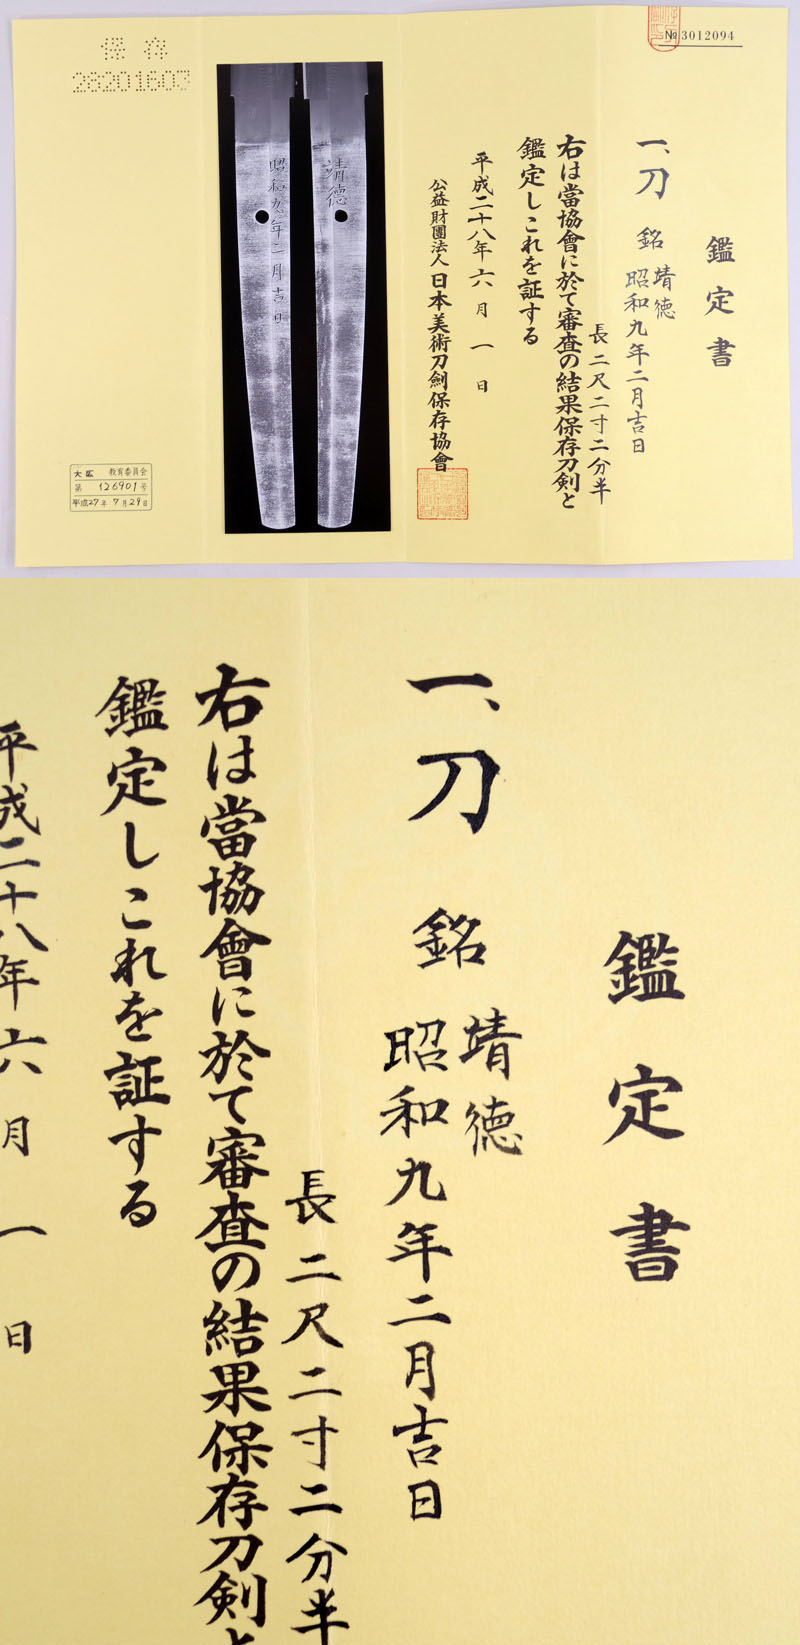 №3012094
鑑定書
一、刀 銘 靖徳
昭和九年二月吉日
長二尺二寸二分半
右は當協會に於て審査の結果保存刀剣と
鑑定しこれを証する
平成二十八年六月一日
公益財團法人日本美術刀劍保存協會
靖徳
昭和九年二月吉日
保存
28201603
教育委員会
第 126901 号
平成27年7月29日
鑑定書
一、刀 銘 靖徳
昭和九年二月吉日
長二尺二寸二分半
右は當協會に於て審査の結果保存刀剣と
鑑定しこれを証する
平成二十八年六月一日